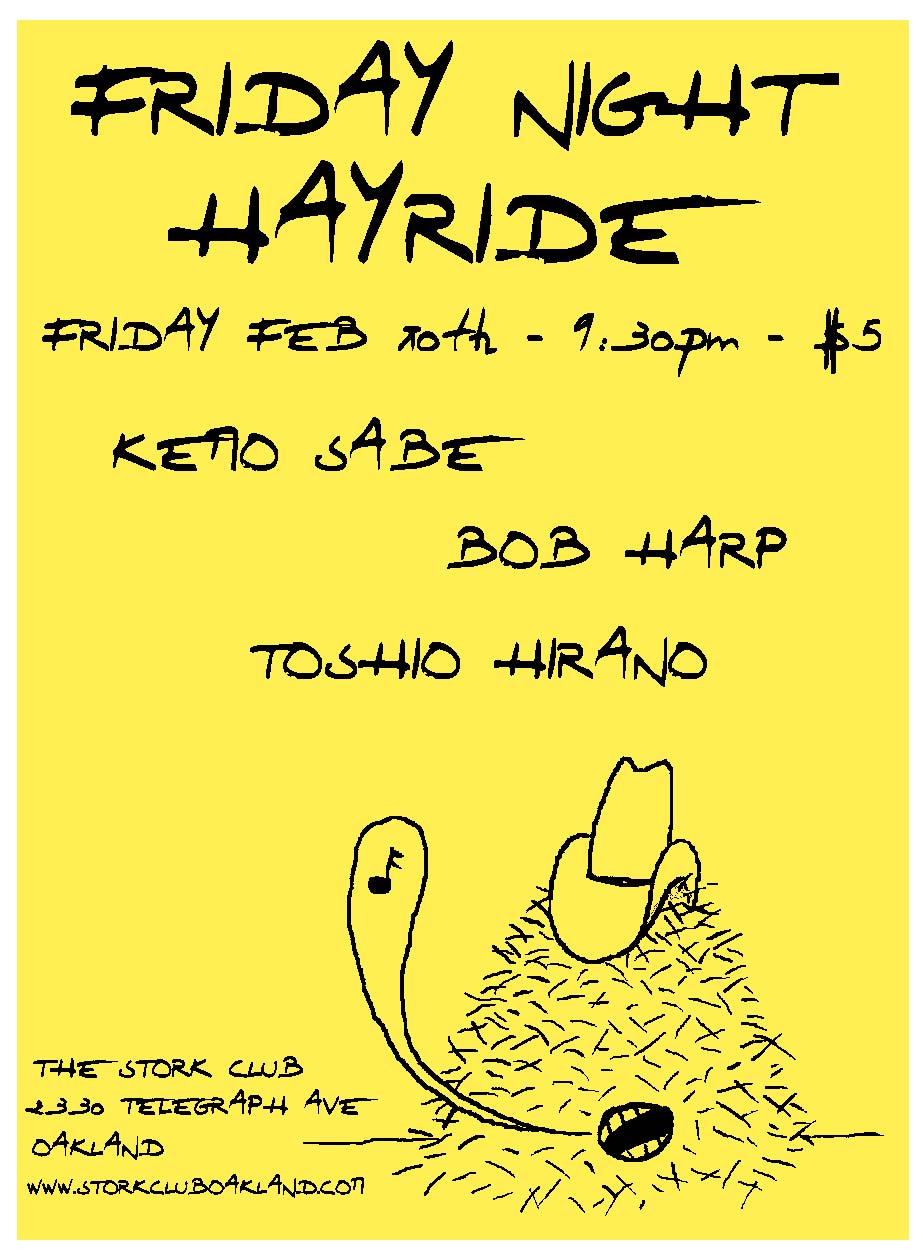 FRIDAY NIGHT
HAYRIDE
FRIDAY FEB - 9:30pm - $5
KEMO SABE
BOB HARP
TOSHIO HIRANO
THE STORK CLUB
2330 TELEGRAPH AVE
OAKLAND
WWW.STORKCLUBOAKLAND.COM